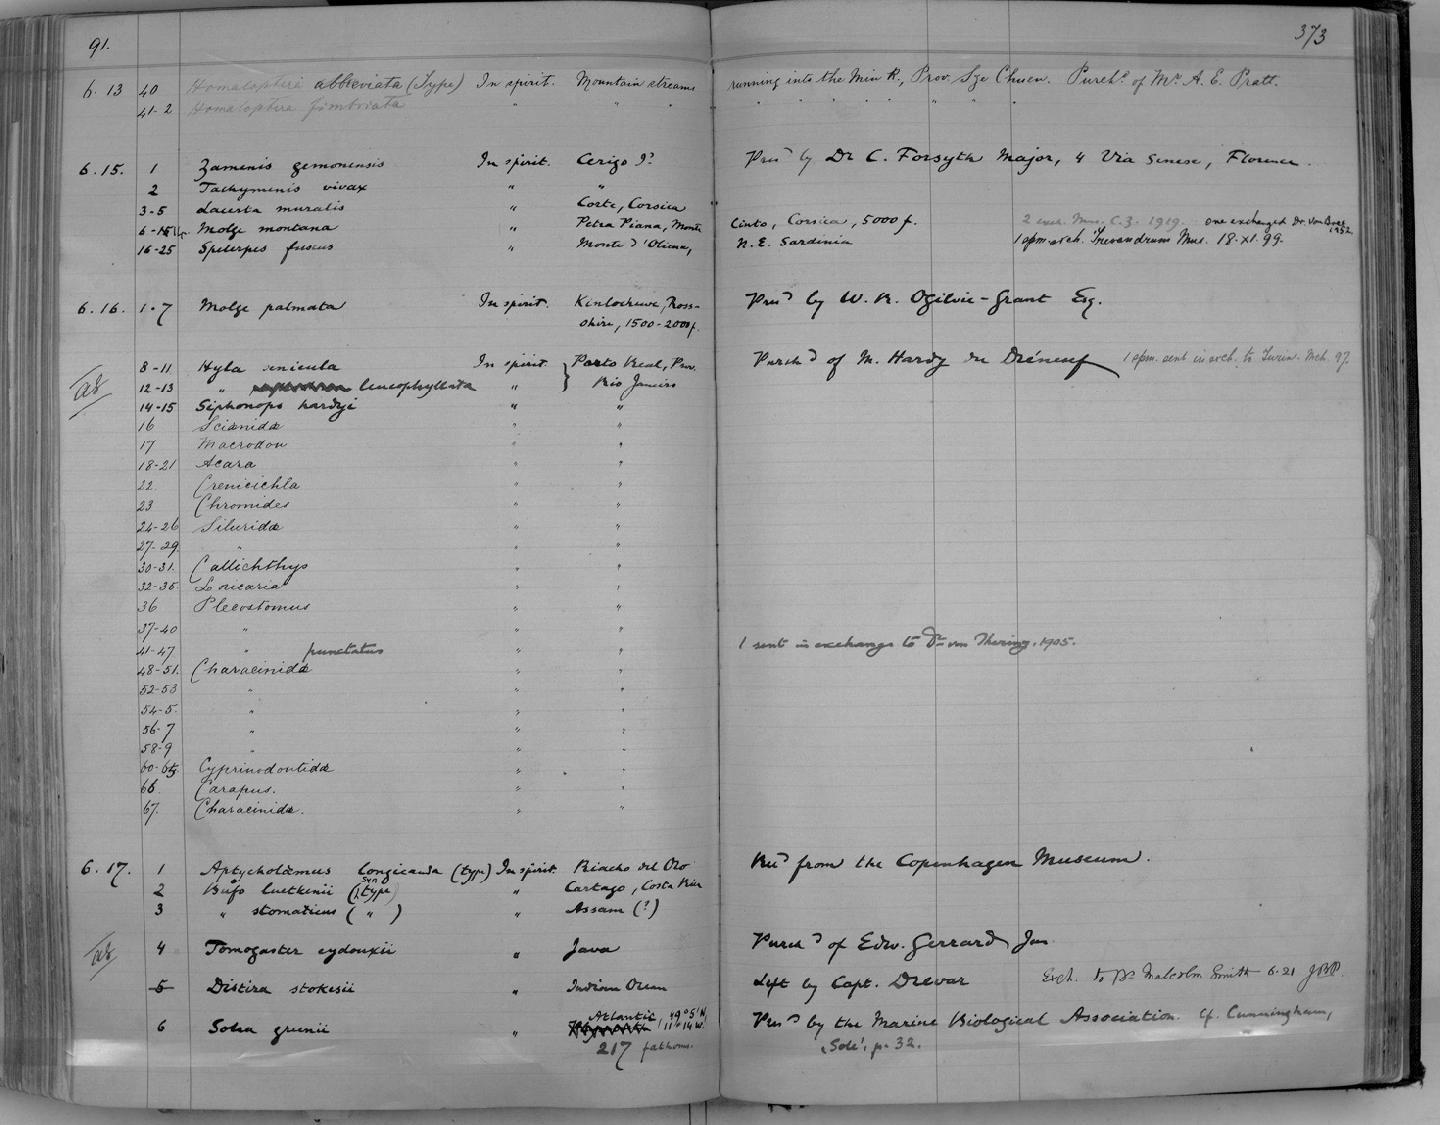 91.
373
6.13 40 Homaloptera abbreviata (Type) In spirit. Mountain streams running into the Min R., Prov. Sze Chuen. Purchd of Mr A. E. Pratt.
41-2 Homaloptera fimbriata " " " " " " " " " "
6.15. 1 Zamenis gemonensis In spirit. Cerigo Id Presd by Dr C. Forsyth Major, 4 Via Senese, Florence.
2 Tachymenis vivax " "
3-5 Lacerta muralis " Corte, Corsica
6-15 Molge montana " Petra Piana, Monte Cinto, Corsica, 5000 f. 2 exch. Mus. C.Z. 1919. one exchanged Dr. Von 1952.
16-25 Spelerpes fuscus " Monte d'Oliena, N.E. Sardinia 1 spm exch. Trevandrum Mus. 18.XI.99.
6.16. 1-7 Molge palmata In spirit. Kinlochewe, Ross- Presd by W. R. Ogilvie-Grant Esq.
shire, 1500-2000 f.
8-11 Hyla senicula In spirit. Porto Real, Prov. Purchd of M. Hardy du Dréneuf 1 spm. sent in exch. to Turin. Mch 97.
12-13 " leucophyllata " Rio Janeiro
14-15 Siphonops hardyi " "
16 Sciænidæ " "
17 Macrodon " "
18-21 Acara " "
22 Crenicichla " "
23 Chromides " "
24-26 Siluridæ " "
27-29 " " "
30-31. Callichthys " "
32-35. Loricaria " "
36 Plecostomus " "
37-40 " " "
41-47 " punctatus " " 1 sent in exchange to Dr von Ihering, 1905.
48-51. Characinidæ " "
52-53 " " "
54-5. " " "
56-7 " " "
58-9 " " "
60-65 Cyprinodontidæ " "
66. Carapus. " "
67. Characinidæ. " "
6.17. 1 Aptycholæmus longicauda (type) In spirit. Riacho del Oro Recd from the Copenhagen Museum.
2 Bufo luetkenii (syntype) " Cartago, Costa Rica
3 " stomaticus ( " ) " Assam (?)
4 Tomogaster eydouxii " Java Purchd of Edw. Gerrard Jun
5 Distira stokesii " Indian Ocean Left by Capt. Drevar Exch. to Dr Malcolm Smith 6.21 JBP.
6 Solea greenii " Atlantic, 49°5'N, 11°14'W. Presd by the Marine Biological Association. Cf. Cunningham,
217 fathoms. 'Sole', p. 32.